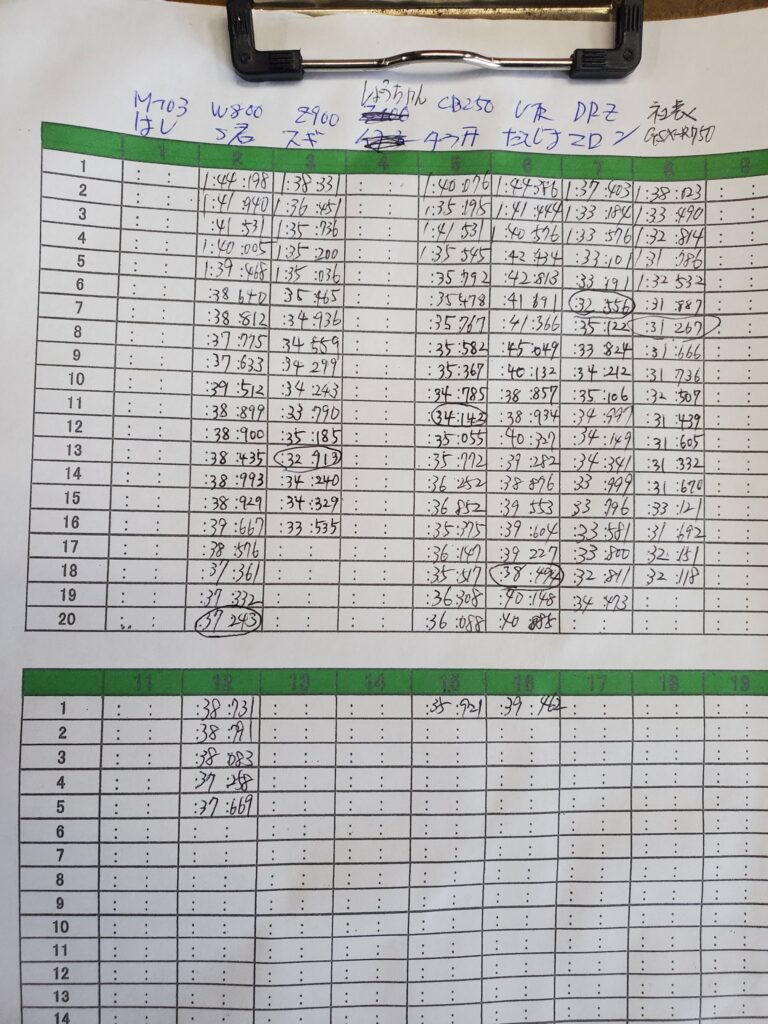 しょうちゃん
W800 Z900 CB250 VTR DRZ 社長
はし スギ マロン GSX-R750
1 2 3 4 5 6 7 8 9
1 : : 1:44:198 1:38:331 : : 1:40:076 1:44:386 1:37:403 1:38:023 : :
2 : : 1:41:940 1:36:451 : : 1:35:195 1:41:444 1:33:184 1:33:490 : :
3 : : :41:531 1:35:736 : : 1:41:531 1:40:576 1:33:576 1:32:814 : :
4 : : 1:40:005 1:35:200 : : 1:35:545 :42:434 :33:101 1:31:786 : :
5 : : 1:39:468 1:35:036 : : :35:792 :42:813 :33:191 1:32:532 : :
6 : : :38:640 35:465 : : :35:478 :41:691 :32:556 :31:887 : :
7 : : :38:812 :34:936 : : :35:767 :41:366 :35:122 :31:267 : :
8 : : :37:775 34:559 : : :35:582 :45:049 :33:824 :31:666 : :
9 : : :37:633 :34:299 : : :35:367 :40:132 :34:212 :31:736 : :
10 : : :39:512 :34:243 : : :34:785 :38:857 :35:106 :32:507 : :
11 : : :38:899 :33:790 : : :34:142 :38:934 :34:997 :31:439 : :
12 : : :38:900 :35:185 : : :35:055 :40:327 :34:149 :31:605 : :
13 : : :38:435 :32:913 : : :35:772 :39:282 :34:341 :31:332 : :
14 : : :38:993 :34:240 : : :36:252 :38:876 :33:999 :31:670 : :
15 : : :38:929 :34:329 : : :36:852 :39:553 :33:796 :33:121 : :
16 : : :39:667 :33:535 : : :35:375 :39:604 :33:581 :31:692 : :
17 : : :38:576 : : : : :36:147 :39:227 :33:800 :32:151 : :
18 : : :37:361 : : : : :35:517 :38:494 :32:811 :32:118 : :
19 : : :37:332 : : : : :36:308 :40:148 :34:473 : : : :
20 : : :37:243 : : : : :36:088 :40 : : : : : :
11 12 13 14 15 16 17 18 19
1 : : :38:731 : : : : :35:921 :39:462 : : : : : :
2 : : :38:791 : : : : : : : : : : : : : :
3 : : :38:083 : : : : : : : : : : : : : :
4 : : :37:258 : : : : : : : : : : : : : :
5 : : :37:669 : : : : : : : : : : : : : :
6 : : : : : : : : : : : : : : : : : :
7 : : : : : : : : : : : : : : : : : :
8 : : : : : : : : : : : : : : : : : :
9 : : : : : : : : : : : : : : : : : :
10 : : : : : : : : : : : : : : : : : :
11 : : : : : : : : : : : : : : : : : :
12 : : : : : : : : : : : : : : : : : :
13 : : : : : : : : : : : : : : : : : :
14 : : : : : : : : : : : : : : : : : :